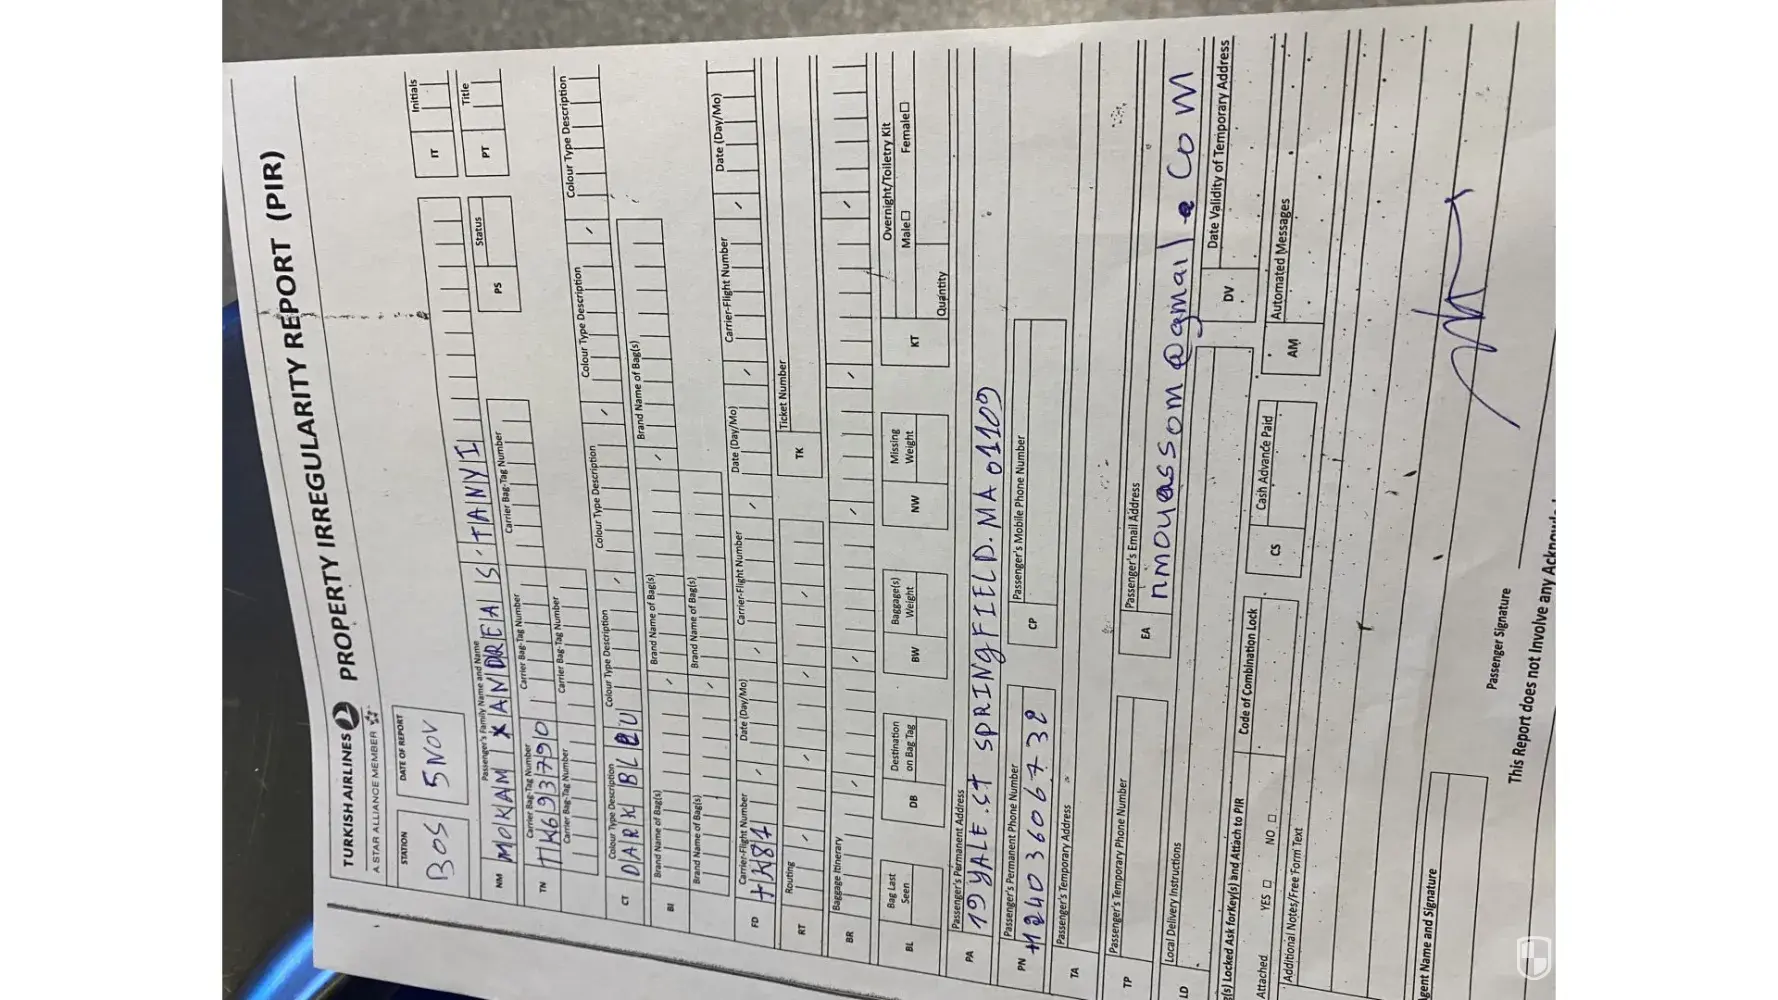 TURKISH AIRLINES PROPERTY IRREGULARITY REPORT (PIR)
A STAR ALLIANCE MEMBER
STATION DATE OF REPORT
BOS 5 NOV
IT Initials
NM Passenger's Family Name and Name PS Status PT Title
MOKAM XANDREAIS TANYI
TN Carrier Bag-Tag Number Carrier Bag-Tag Number Carrier Bag-Tag Number
TK693790
Carrier Bag-Tag Number Carrier Bag-Tag Number
CT Colour Type Description Colour Type Description Colour Type Description Colour Type Description Colour Type Description
DARK BLEU
BI Brand Name of Bag(s) Brand Name of Bag(s) Brand Name of Bag(s)
Brand Name of Bag(s) Brand Name of Bag(s)
FD Carrier-Flight Number Date (Day/Mo) Carrier-Flight Number Date (Day/Mo) Carrier-Flight Number Date (Day/Mo)
TK81
RT Routing TK Ticket Number
BR Baggage Itinerary
BL Bag Last Seen DB Destination on Bag Tag BW Baggage(s) Weight NW Missing Weight KT Overnight/Toiletry Kit
Male Female
Quantity
PA Passenger's Permanent Address
19 YALE.ST SPRINGFIELD.MA 01109
PN Passenger's Permanent Phone Number CP Passenger's Mobile Phone Number
TA Passenger's Temporary Address
TP Passenger's Temporary Phone Number EA Passenger's Email Address
nmouassom@gmal.com
LD Local Delivery Instructions DV Date Validity of Temporary Address
(s) Locked Ask forKey(s) and Attach to PIR Code of Combination Lock CS Cash Advance Paid AM Automated Messages
Attached YES NO
Additional Notes/Free Form Text
Agent Name and Signature Passenger Signature
This Report does not Involve any